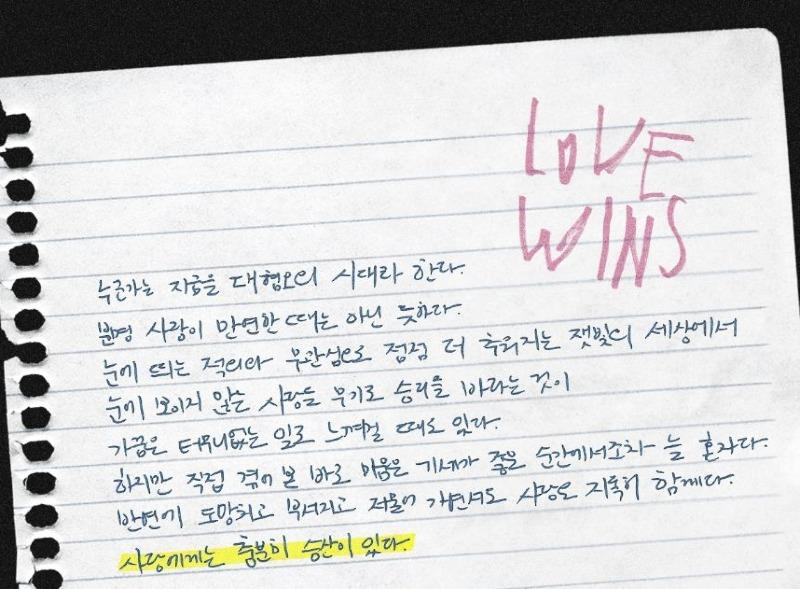 LOVE
WINS
누군가는 지금을 대혐오의 시대라 한다.
분명 사랑이 만연한 때는 아닌 듯하다.
눈에 띄는 적의와 무관심으로 점점 더 추워지는 잿빛의 세상에서
눈에 보이지 않는 사랑을 무기로 승리를 바라는 것이
가끔은 터무니없는 일로 느껴질 때도 있다.
하지만 직접 겪어 본 바로 미움은 기세가 좋은 순간에서조차 늘 혼자다.
반면에 도망치고 부서지고 저물어 가면서도 사랑은 지독히 함께다.
사랑에게는 충분히 승산이 있다.